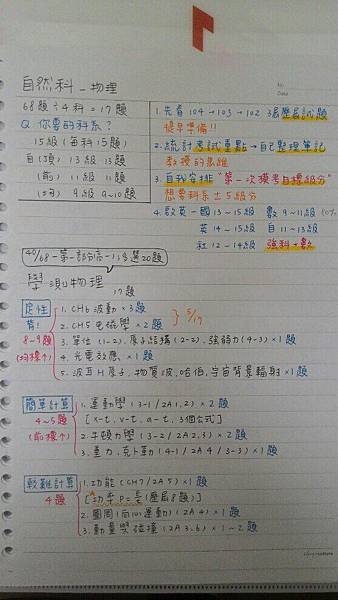 自然科 - 物理
No.
Date
68題÷4科=17題
Q 你要的科系?
15級 (每科15題)
自(頂) 13級 13題
(前) 11級 11題
(均) 9級 9~10題
1. 先看 104→103→102 3屆歷屆試題
提早準備!!
2. 統計考試重點→自己整理筆記
教授的思維
3. 自我安排"第一次模考目標級分"
想要科系±5級分
4. 數英-國 13~15級 數 9~11級
英 14~15級 自 11~13級
社 12~14級 強科+數
40/68-第一部分高一,多選20題
學測物理
17題
定性
背!
8~9題
(均標↑)
1. CH6 波動×3題
2. CH5 电磁學×2題
} 5/17
3. 單位(1-2)、原子結構(2-2)、強弱力(4-3)×1題
4. 光電效應、×1題
5. 波耳H原子,物質波,哈伯,宇宙背景輻射×1題
簡單計算
4~5題
(前標↑)
1. 運動學(3-1/2A1,2)×2題
[x-t、v-t、a-t、3個公式]
2. 牛頓力學(3-2/2A2,3)×2題
3. 重力、克卜勒(4-1/2A4/3-3)×1題
較難計算
4題
1. 功能(CH7/2A5)×1題
[功率P=(歷屆8題)]
2. 圓周(向心運動)(2A4)×1題
3. 動量與碰撞(2A3、6)×1~2題